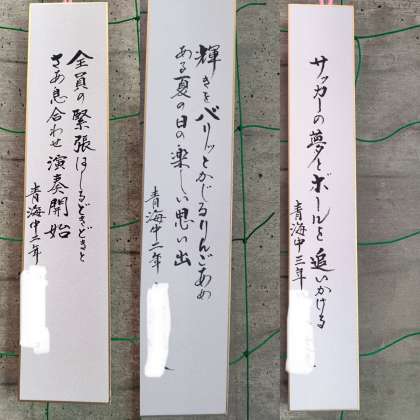 全員の緊張はしるどきどきと
さあ息合わせ演奏開始
青海中二年
輝きをバリッとかじるりんごあめ
ある夏の日の楽しい思い出
青海中二年
サッカーの夢とボールを追いかける
青海中三年